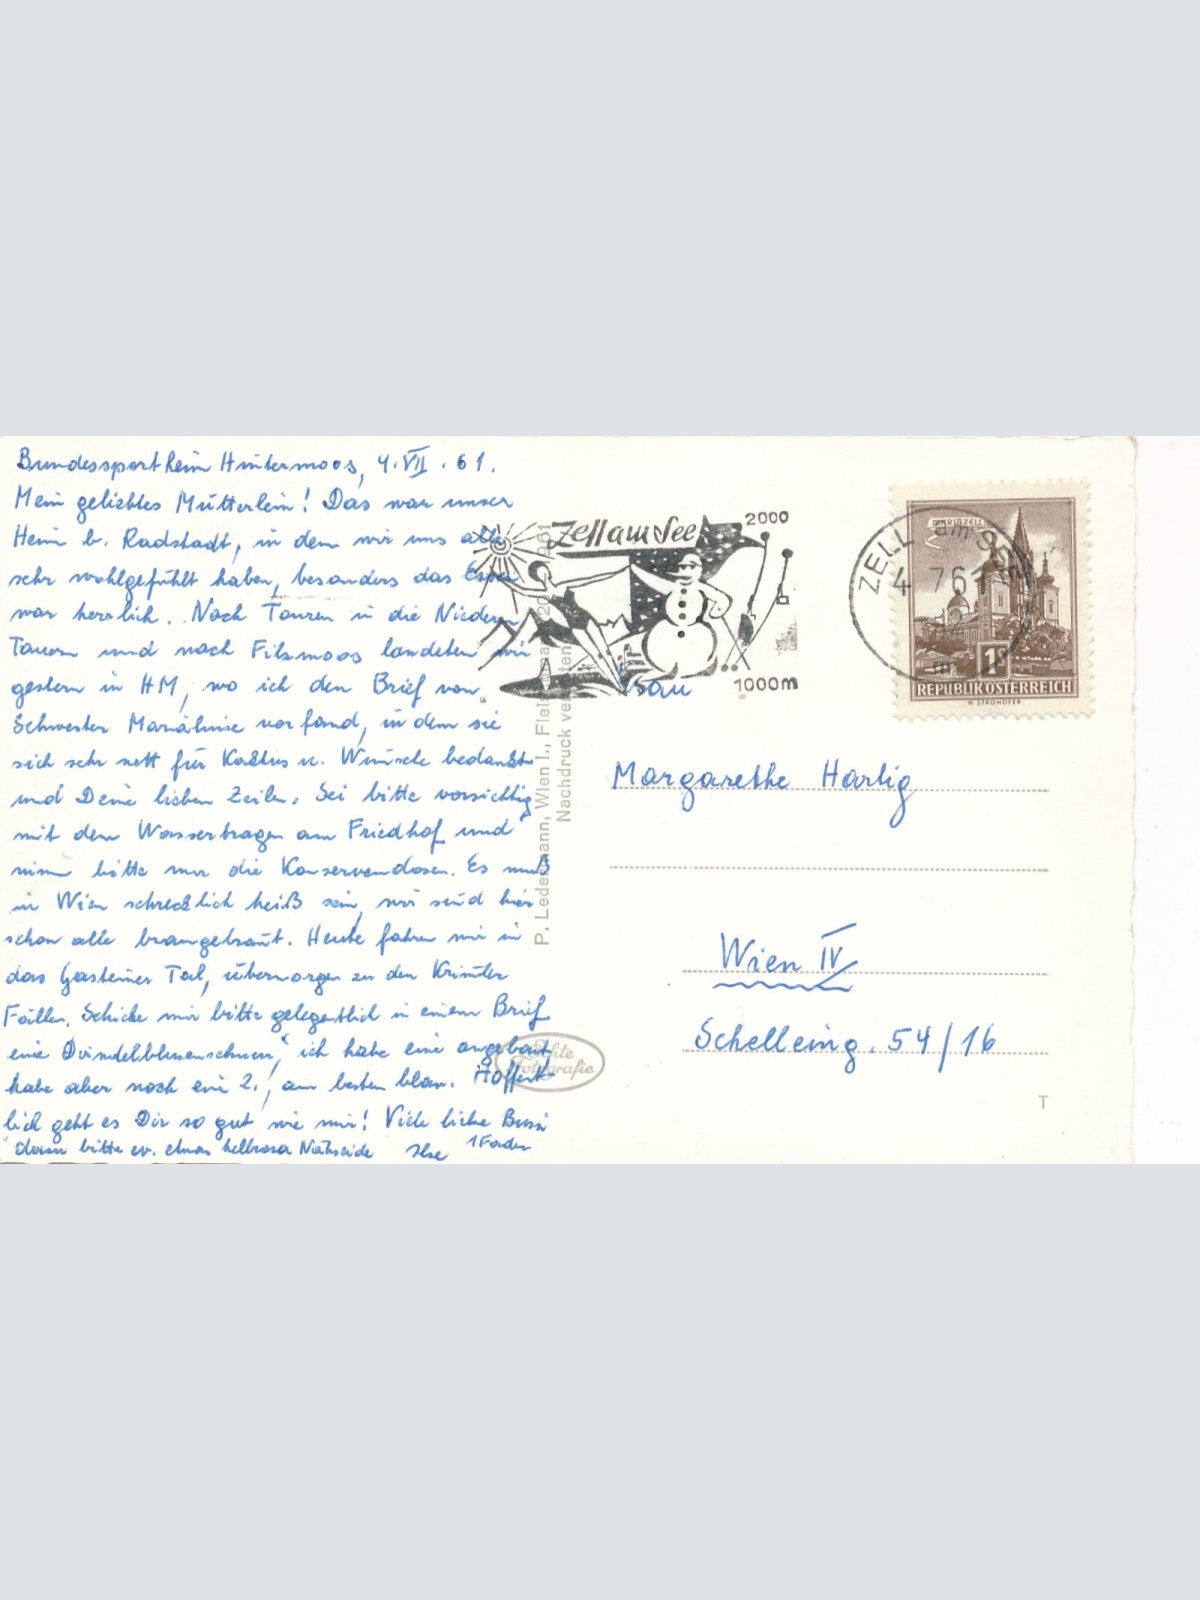 Bundessportheim Hintermoos, 4.VII.61.
Mein geliebtes Mütterlein! Das war unser
Heim b. Radstadt, in dem wir uns alle
sehr wohlgefühlt haben, besonders das Essen
war herrlich. Nach Touren in die Niedern
Tauern und nach Filzmoos landeten wir
gestern in HM, wo ich den Brief von
Schwester vorfand, in dem sie
sich sehr nett für u. Wünsche bedankt
und Deine lieben Zeilen. Sei bitte vorsichtig
mit dem Wassertragen am Friedhof und
nimm bitte nur die Konservendosen. Es muß
in Wien schrecklich heiß sein, wir sind hier
schon alle braungebrannt. Heute fahren wir in
das Gasteiner Tal, übermorgen zu den Krimler
Fällen. Schicke mir bitte gelegentlich in einem Brief
eine ich habe eine angebaut,
habe aber noch ein 2., am besten blau. Hoffent-
lich geht es Dir so gut wie mir! Viele liebe Bussi
dazu bitte ev. etwas hellrosa Nähseide Ilse 1 Faden
Zell am See
2000
1000m
ZELL am SEE
4 7 61
MARIAZELL
1S
REPUBLIK ÖSTERREICH
H. STROHOFER
P. Ledermann, Wien I.,
Nachdruck
Echte
Fotografie
Frau
Margarethe Hartig
Wien IV
Schelleing. 54/16
T